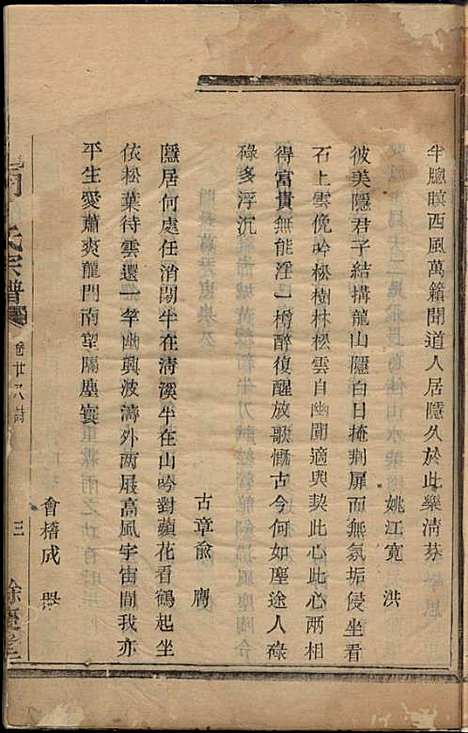 半牕瞑西風萬籟聞道人居隱久於此樂清芬
姚江寬　洪
彼美隱君子結搆龍山隱白日掩荆扉而無氛垢侵坐看
石上雲俛吟松樹林松雲自幽閒適與契此心此心兩相
得富貴無能淫一樽醉復醒放歌慨古今何如塵途人碌
碌多浮沉
古章俞　膺
隱居何處任消閒半在淸溪半在山吟對蘋花看鶴起坐
依松葉待雲還一竿幽興波濤外两屐高風宇宙間我亦
平生愛蕭爽龍門南望隔塵寰
會稽成
氏宗譜
卷廿八詩
三